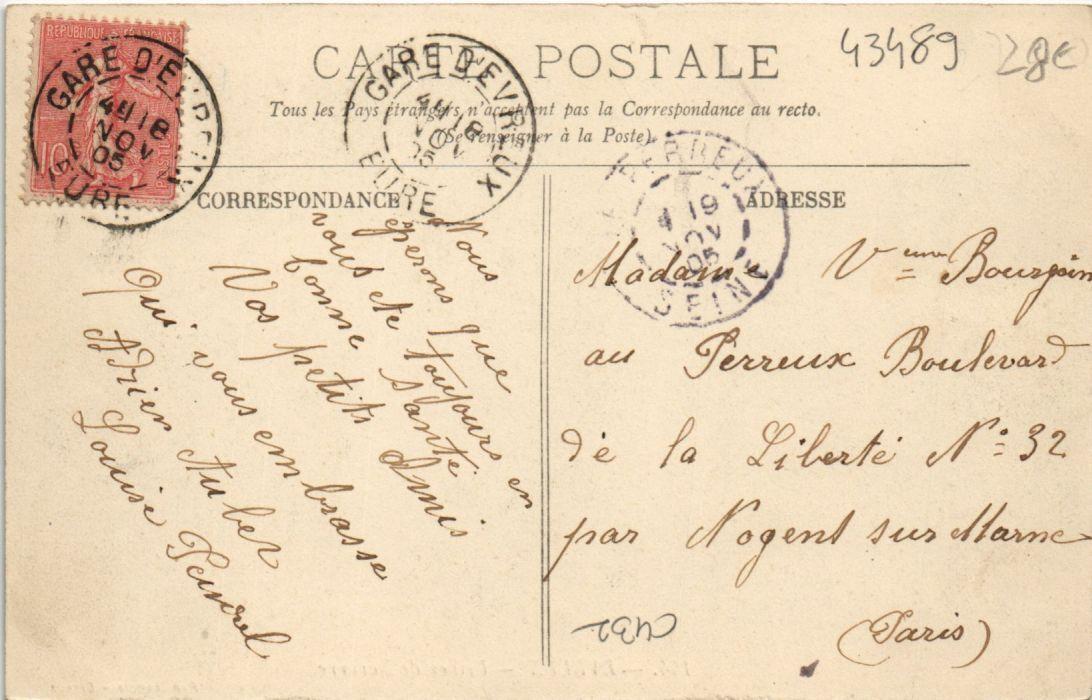 RÉPUBLIQUE FRANÇAISE
10
GARE D'EVREUX
4 18
NOV
05
EURE
CARTE POSTALE
Tous les Pays étrangers n'acceptent pas la Correspondance au recto.
(Se renseigner à la Poste)
43489
28€
GARE D'EVREUX
4 18
NOV
05
EURE
PERREUX
4 19
NOV
05
SEINE
CORRESPONDANCE
Nous
éperons que
vous ete toujours en
bonne santé
Vos petits Amis
Qui vous embrasse
Adrien Aubez
Louise
ADRESSE
Madame Vve Bourgoin
au Perreux Boulevard
de la Liberté No 32
par Nogent sur Marne
(Paris)